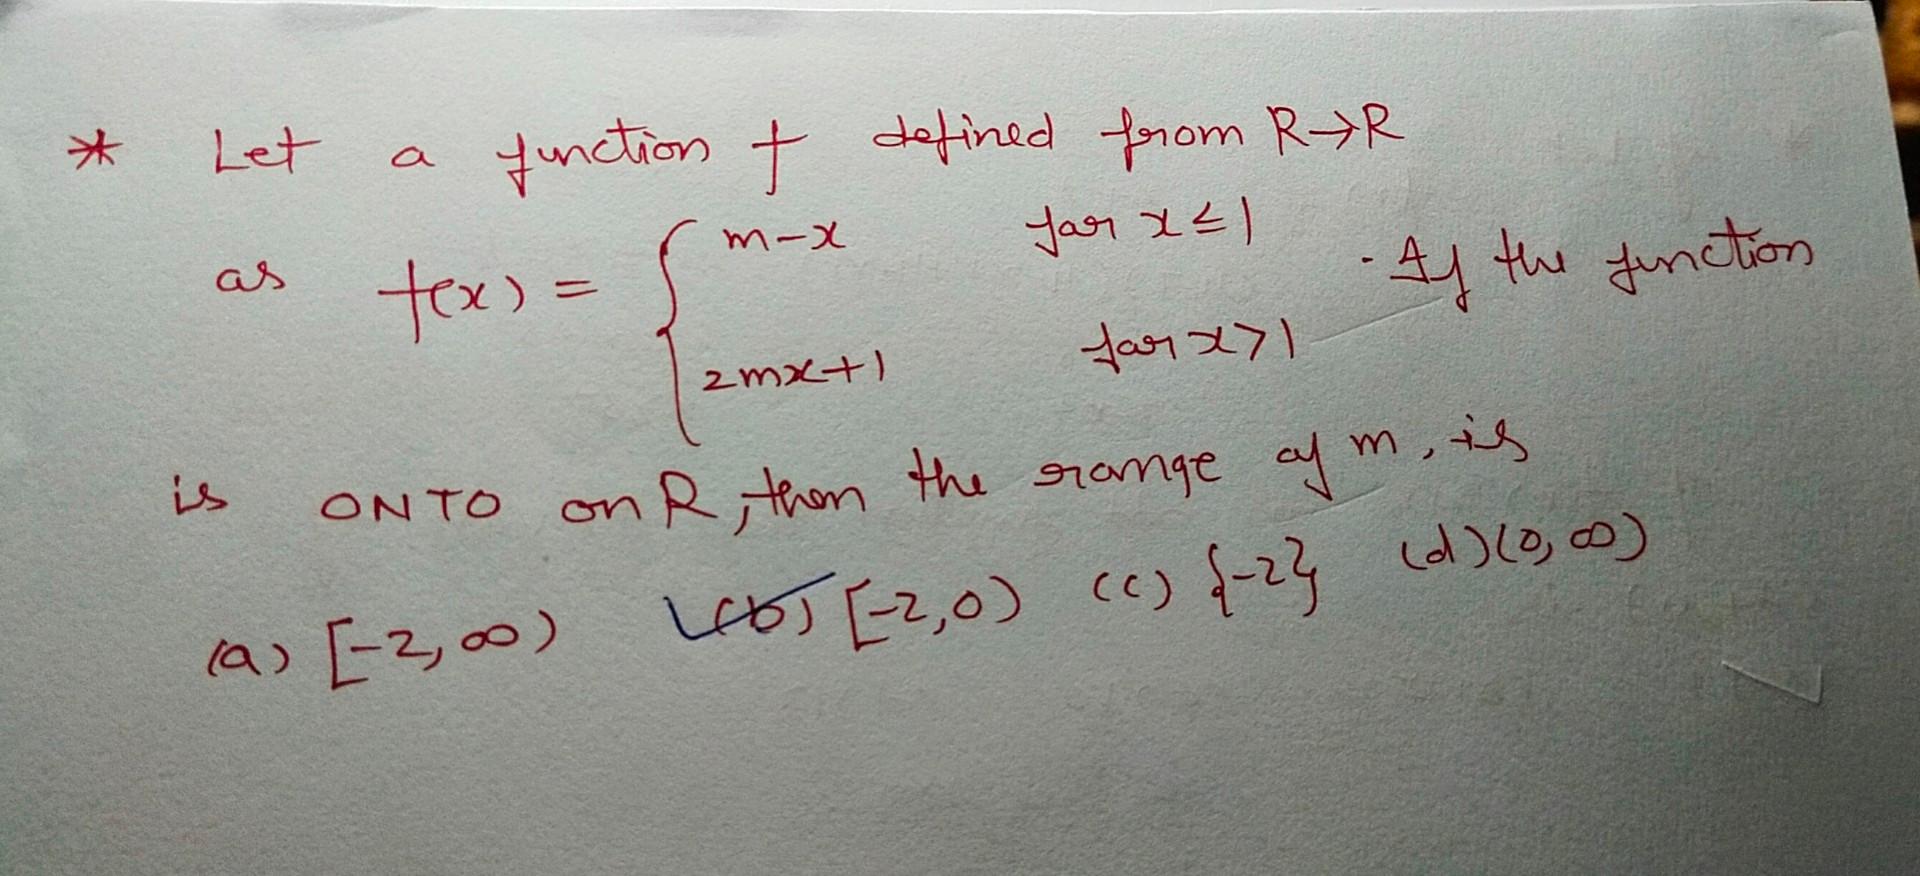 * Let a function f defined from R→R
as f(x) = { m-x for x ≤ 1 . If the function
2mx+1 for x>1
is ONTO on R, then the range of m, is
(a) [-2, ∞) (b) [-2, 0) (c) {-2} (d) (0, ∞)